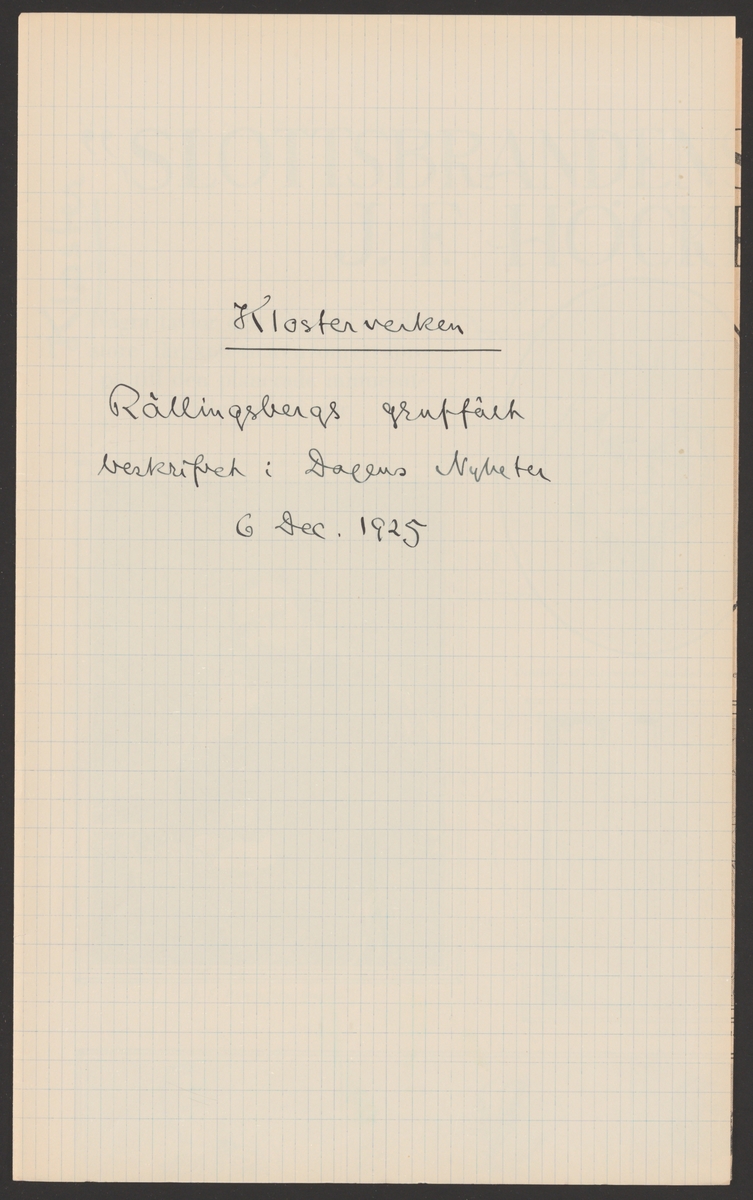 Klosterverken
Rällingsbergs gruffält
beskrifvet i Dagens Nyheter
6 Dec. 1925